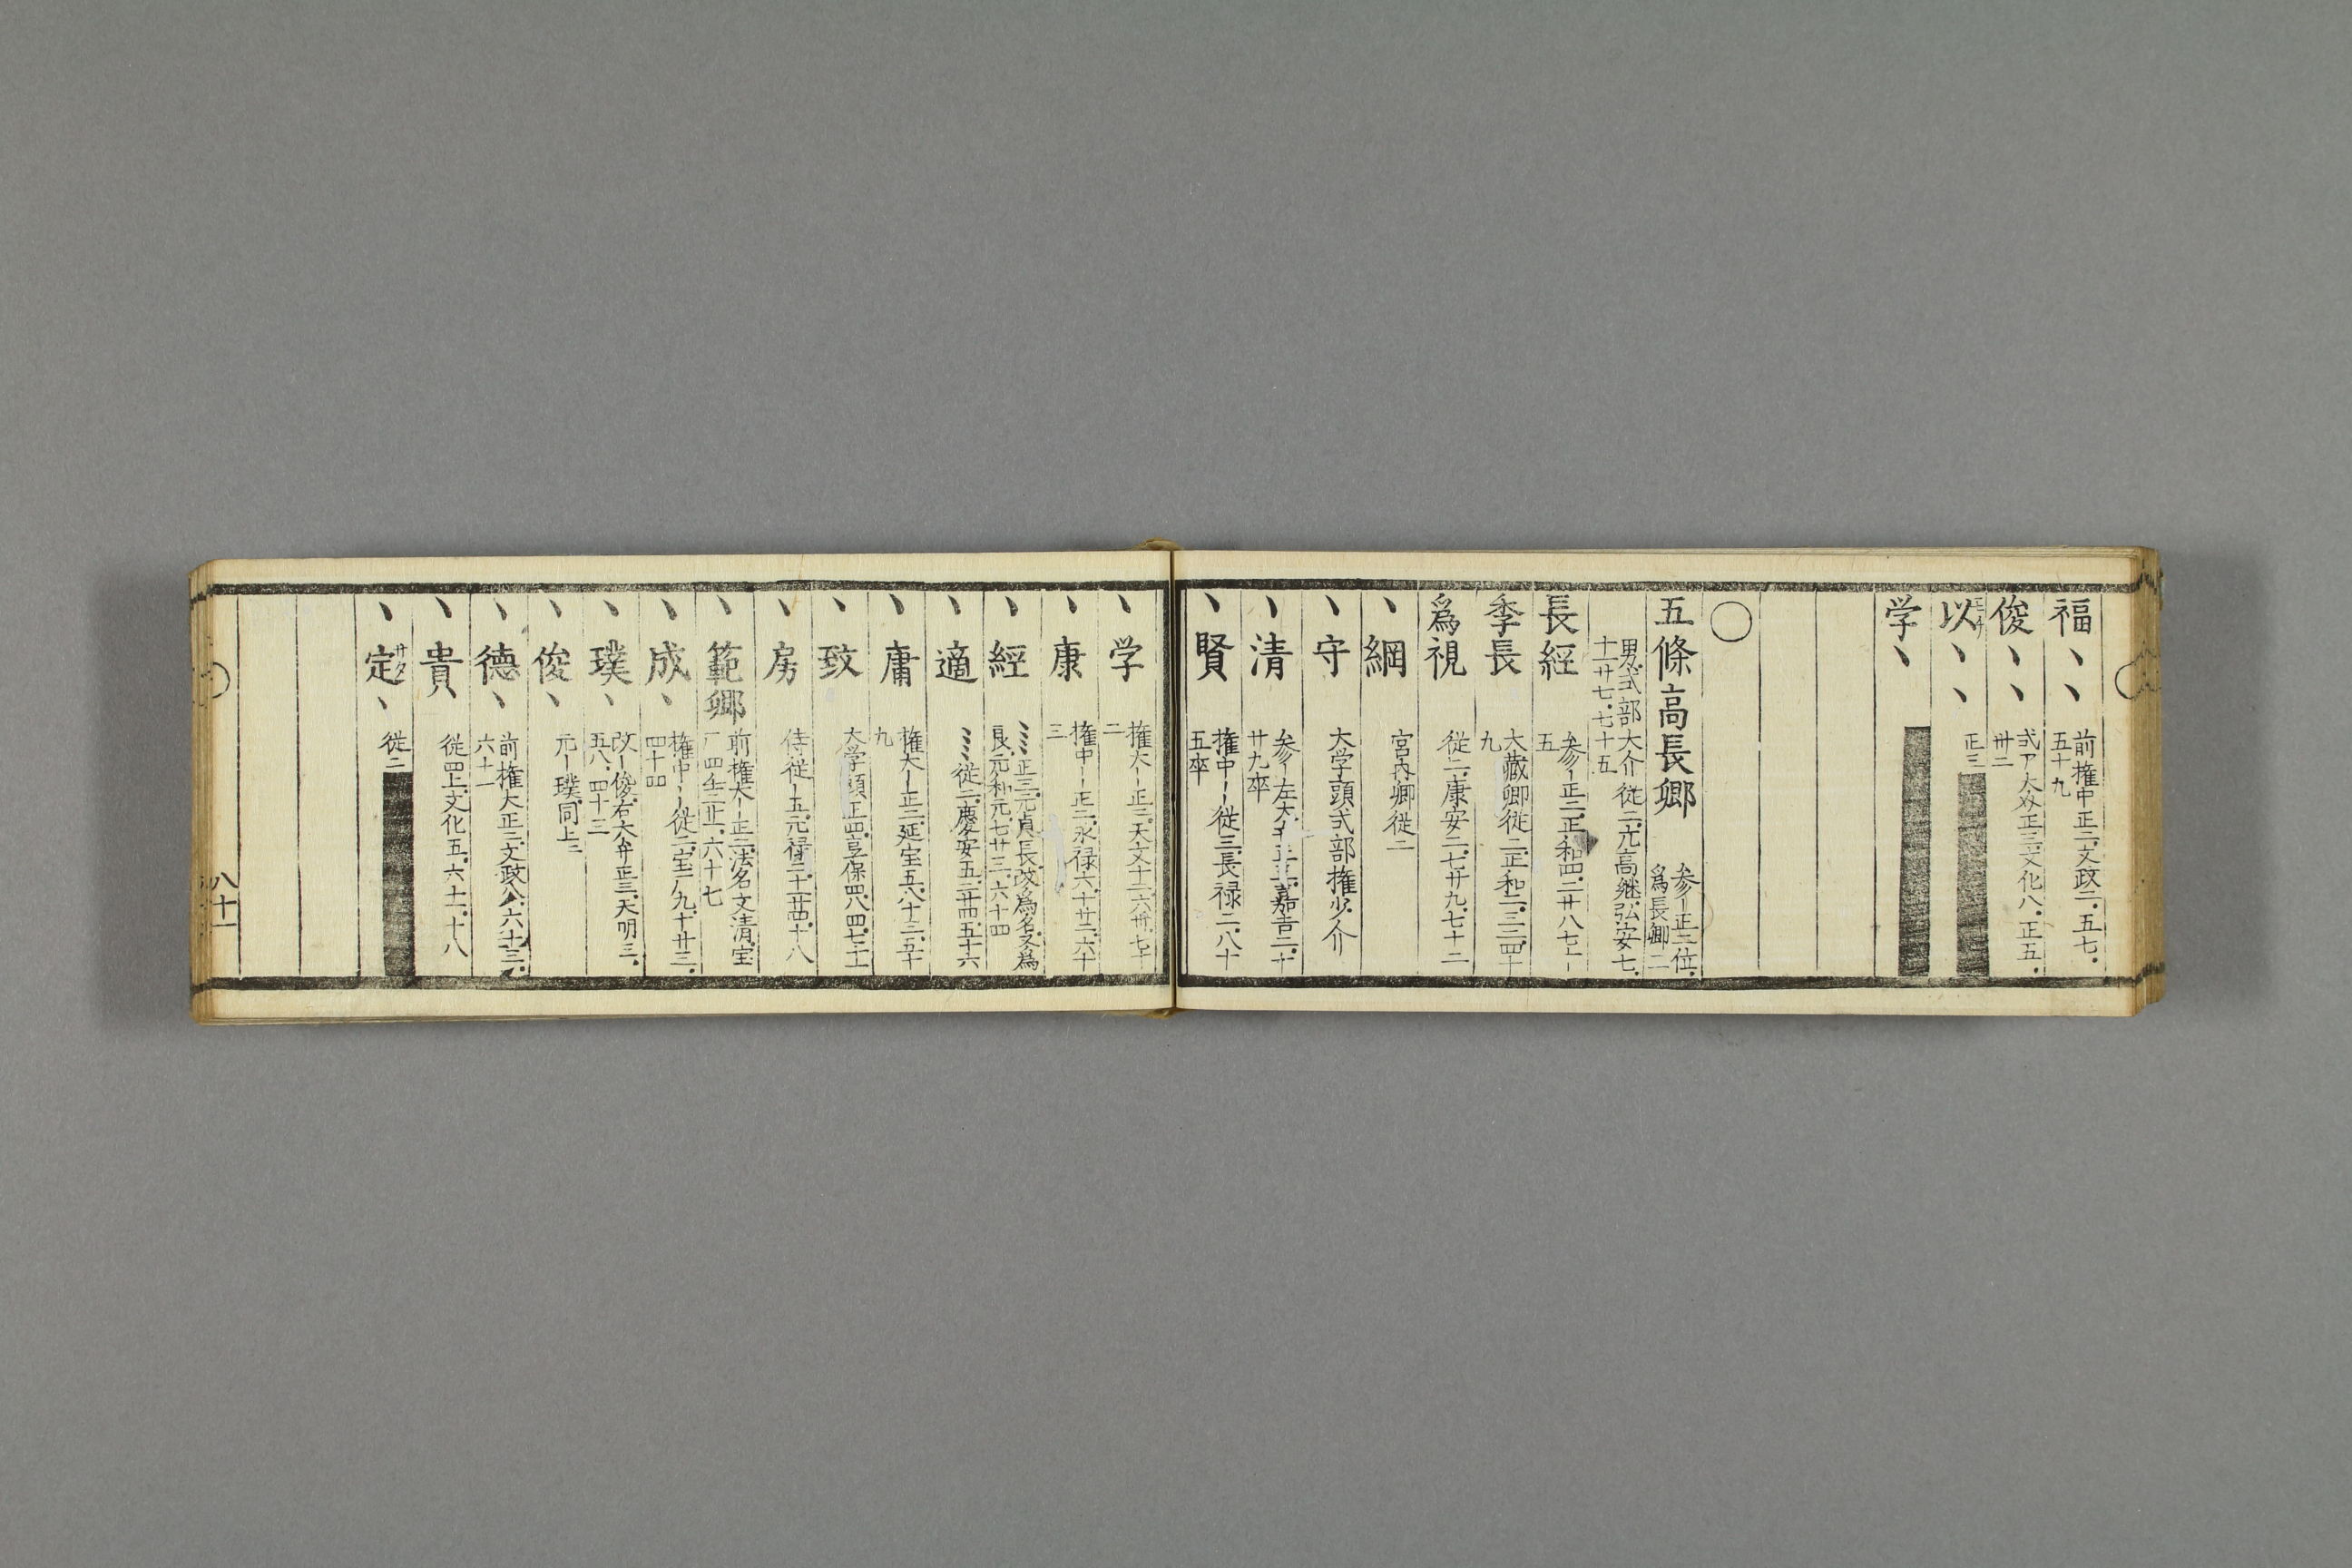 福ヽヽ 前権中正二.文政二.五七.
五十九
俊ヽヽ 弍ア大丞正三文化八.正五.
卅二
以ヽヽ 正三
学ヽ
〇
五條高長卿 参ー正二位.
為長卿二
男.式部大介従二.元高継.弘安七.
十一廿七.七十五
長経 参ー正二.正和四.二廿八七十
五
季長 大蔵卿従二.正和二.三.四十
九
為視 従二.康安二.七廿九.七十二
ヽ綱 宮内卿従二
ヽ守 大学頭式部権少介
ヽ清 参ー左大弁正三.嘉吉二.十
廿九卒
ヽ賢 権中ー従三.長禄二.八十
五卒
ヽ学 権大ー正二.天文十二.六卅.七十
二
ヽ康 権中ー正二.永禄六.十廿二.六十
三
ヽ經 ミミ正三.元貞長.改為名.又為
良.元和元.七廿三.六十四
ヽ適 ミミ従二.慶安五.二廿四.五十六
ヽ庸 権大ー正二.延宝五.八十三.五十
九
ヽ致 大学頭正四.享保四.八.四.七十二
ヽ房 侍従ー五.元禄二.十二廿四.十八
ヽ範卿 前権大ー正二.法名文清.宝
ー四壬二正.六十七
ヽ成ヽ 権中ー従二.宝ー九.十廿三.
四十四
ヽ璞ヽ 改ー俊.右大弁正三.天明三.
五八.四十三
ヽ俊ヽ 元ー璞.同上ニ
ヽ徳ヽ 前権大正二.文政八.六十三.
六十一
ヽ貴ヽ 従四上.文化五.六十一.十八
ヽ定ヽ 従二
八十一